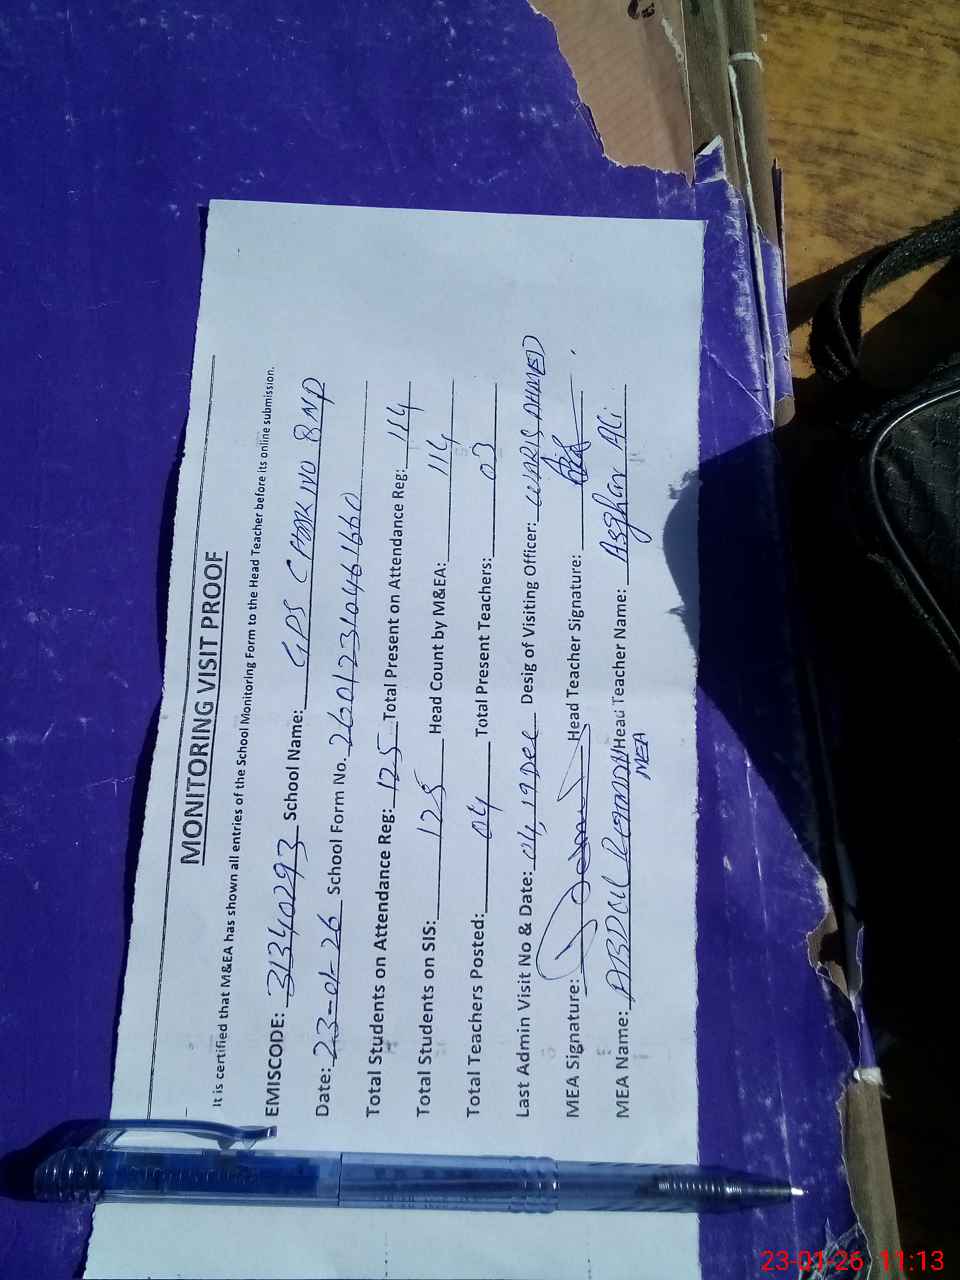 MONITORING VISIT PROOF
It is certified that M&EA has shown all entries of the School Monitoring Form to the Head Teacher before its online submission.
EMISCODE: 31340293 School Name: GPS CHAK NO 8NP
Date: 23-01-26 School Form No. 26012310461660
Total Students on Attendance Reg: 125 Total Present on Attendance Reg: 114
Total Students on SIS: 125 Head Count by M&EA: 114
Total Teachers Posted: 04 Total Present Teachers: 03
Last Admin Visit No & Date: 04, 19 Dec Desig of Visiting Officer: WARIS AHMED
MEA Signature: Head Teacher Signature:
MEA Name: ABDUL REHMAN Head Teacher Name: Asghar Ali
MEA
23-01-26 11:13